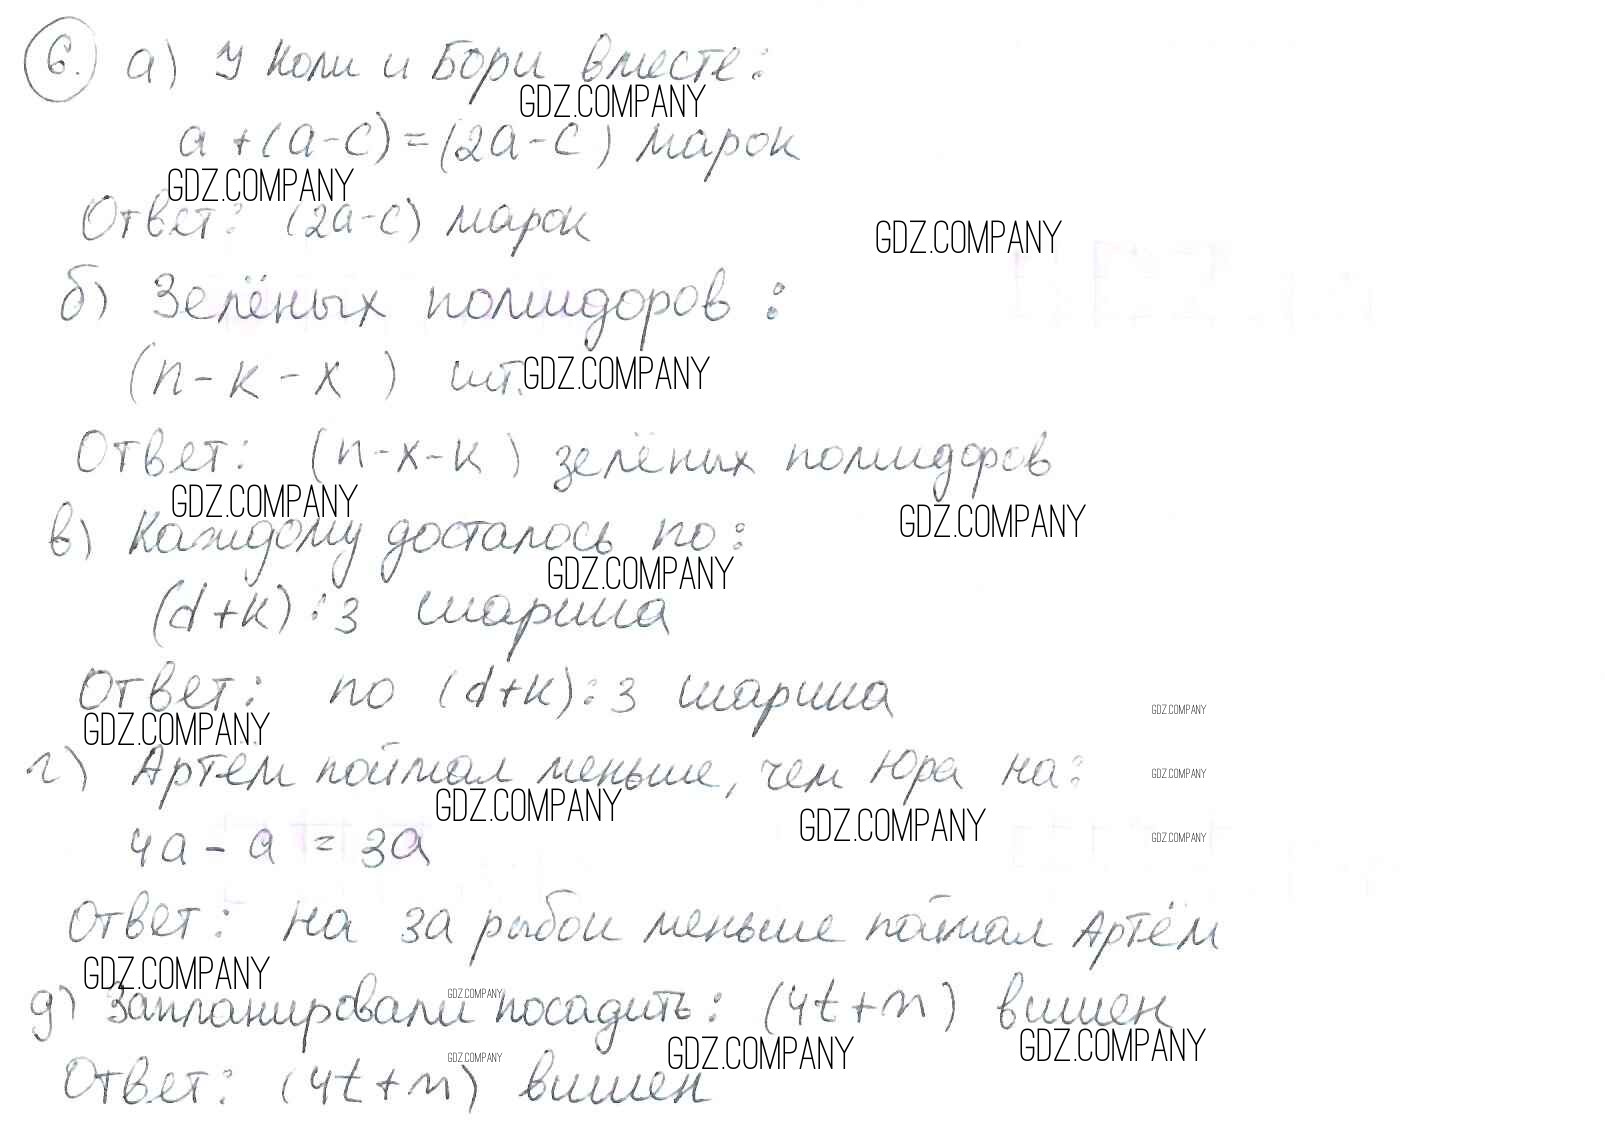 6. а) У Коли и Бори вместе:
GDZ.COMPANY
a + (a - c) = (2a - c) марок
GDZ.COMPANY
Ответ: (2a - c) марок
GDZ.COMPANY
б) Зелёных помидоров :
(n - k - x ) шт.
GDZ.COMPANY
Ответ: (n - x - k ) зелёных помидоров
GDZ.COMPANY
GDZ.COMPANY
в) Каждому досталось по:
GDZ.COMPANY
(d + k) : 3 шарика
Ответ: по (d + k) : 3 шарика
GDZ.COMPANY
GDZ.COMPANY
г) Артём поймал меньше, чем Юра на:
GDZ.COMPANY
GDZ.COMPANY
GDZ.COMPANY
4a - a = 3a
GDZ.COMPANY
Ответ: на 3a рыбок меньше поймал Артём
GDZ.COMPANY
GDZ.COMPANY
д) Запланировали посадить: (4t + n) вишен
GDZ.COMPANY
GDZ.COMPANY
GDZ.COMPANY
Ответ: (4t + n) вишен